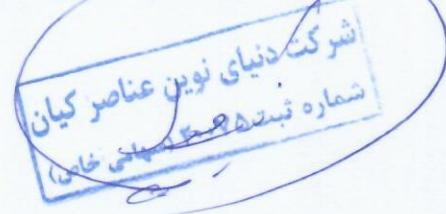 شرکت دنیای نوین عناصر کیان
شماره ثبت (سهامی خاص)